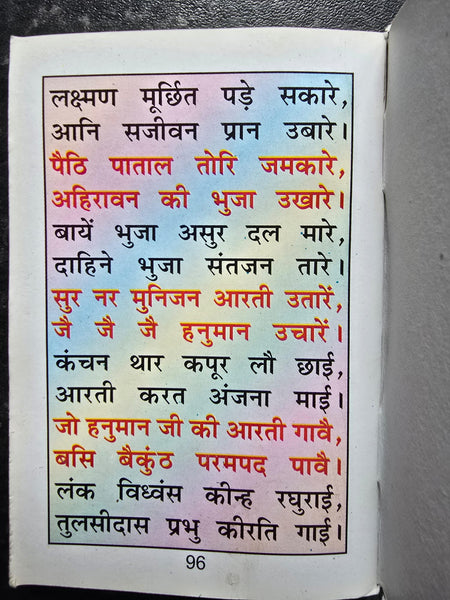 लक्ष्मण मूर्छित पड़े सकारे,
आनि सजीवन प्रान उबारे।
पैठि पाताल तोरि जमकारे,
अहिरावन की भुजा उखारे।
बायें भुजा असुर दल मारे,
दाहिने भुजा संतजन तारे।
सुर नर मुनिजन आरती उतारें,
जै जै जै हनुमान उचारें।
कंचन थार कपूर लौ छाई,
आरती करत अंजना माई।
जो हनुमान जी की आरती गावै,
बसि बैकुंठ परमपद पावै।
लंक विध्वंस कीन्ह रघुराई,
तुलसीदास प्रभु कीरति गाई।
96